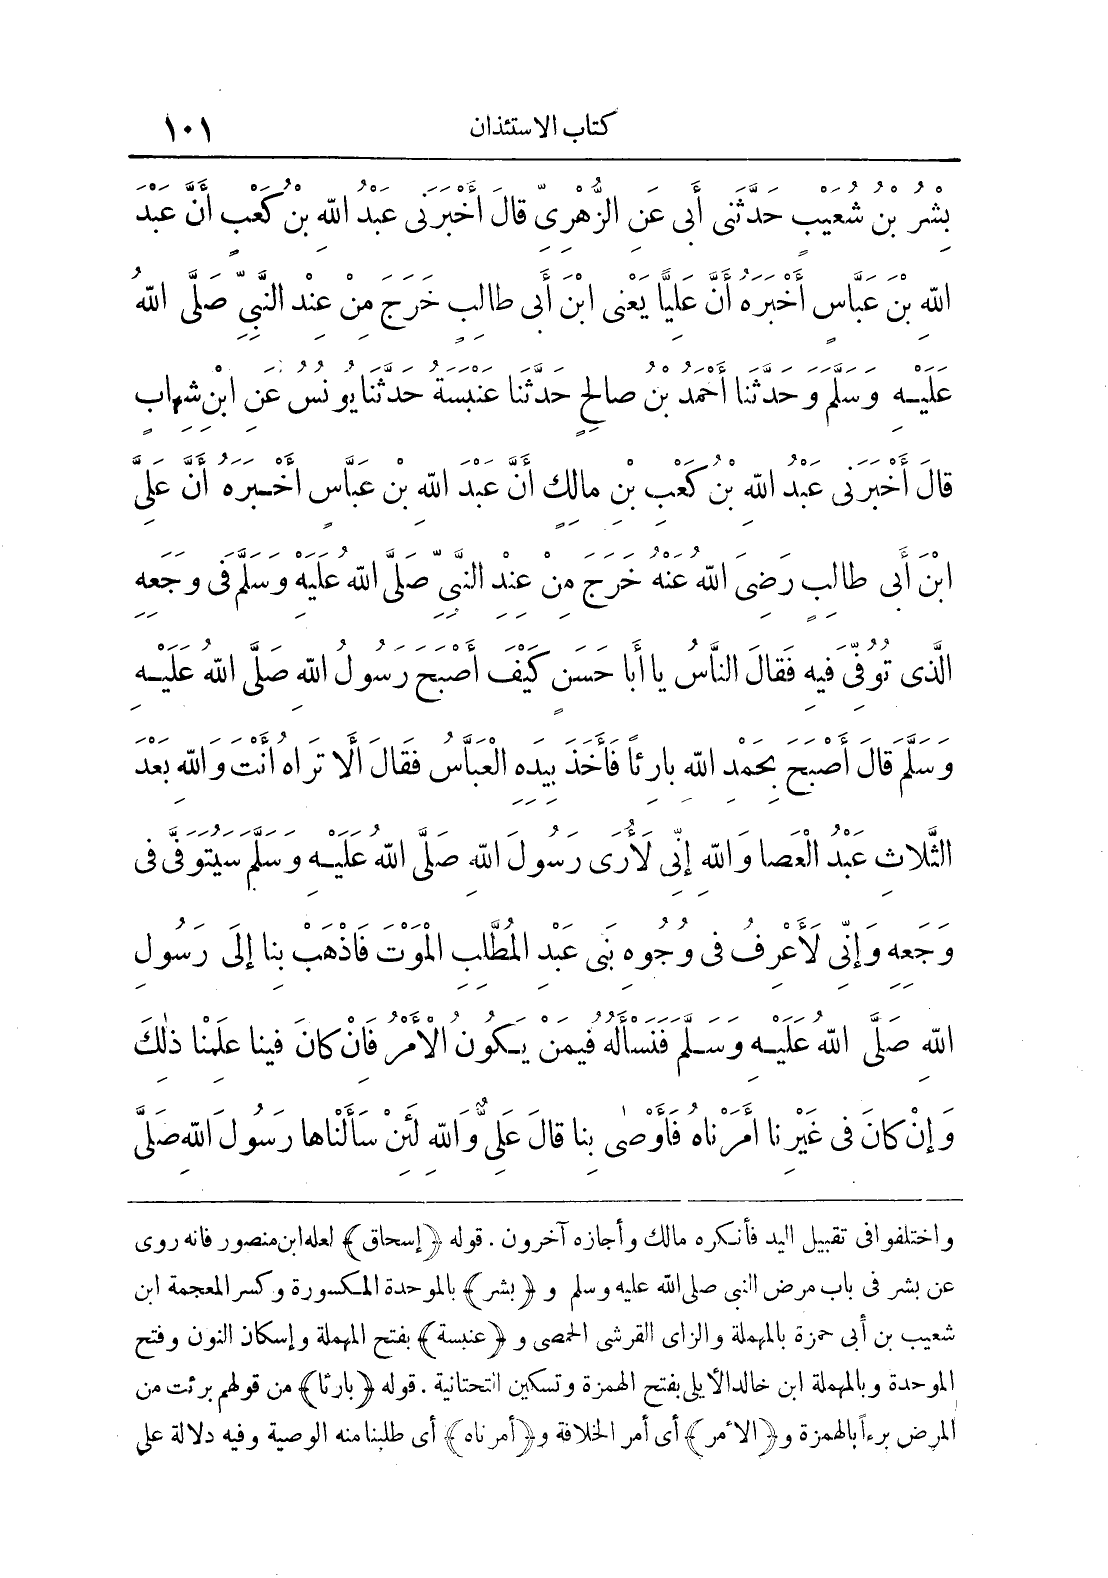 كتاب الاستئذان ١٠١
بِشْرُ بْنُ شُعَيْبٍ حَدَّثَنِى أَبِى عَنِ الزُّهْرِىِّ قَالَ أَخْبَرَنِى عَبْدُ اللهِ بْنُ كَعْبٍ أَنَّ عَبْدَ
اللهِ بْنَ عَبَّاسٍ أَخْبَرَهُ أَنَّ عَلِيًّا يَعْنِى ابْنَ أَبِى طَالِبٍ خَرَجَ مِنْ عِنْدِ النَّبِىِّ صَلَّى اللهُ
عَلَيْهِ وَسَلَّمَ وَحَدَّثَنَا أَحْمَدُ بْنُ صَالِحٍ حَدَّثَنَا عَنْبَسَةُ حَدَّثَنَا يُونُسُ عَنِ ابْنِ شِهَابٍ
قَالَ أَخْبَرَنِى عَبْدُ اللهِ بْنُ كَعْبِ بْنِ مَالِكٍ أَنَّ عَبْدَ اللهِ بْنَ عَبَّاسٍ أَخْبَرَهُ أَنَّ عَلِىَّ
ابْنَ أَبِى طَالِبٍ رَضِىَ اللهُ عَنْهُ خَرَجَ مِنْ عِنْدِ النَّبِىِّ صَلَّى اللهُ عَلَيْهِ وَسَلَّمَ فِى وَجَعِهِ
الَّذِى تُوُفِّىَ فِيهِ فَقَالَ النَّاسُ يَا أَبَا حَسَنٍ كَيْفَ أَصْبَحَ رَسُولُ اللهِ صَلَّى اللهُ عَلَيْهِ
وَسَلَّمَ قَالَ أَصْبَحَ بِحَمْدِ اللهِ بَارِئًا فَأَخَذَ بِيَدِهِ الْعَبَّاسُ فَقَالَ أَلَا تَرَاهُ أَنْتَ وَاللهِ بَعْدَ
الثَّلَاثِ عَبْدُ الْعَصَا وَاللهِ إِنِّى لَأُرَى رَسُولَ اللهِ صَلَّى اللهُ عَلَيْهِ وَسَلَّمَ سَيُتَوَفَّى فِى
وَجَعِهِ وَإِنِّى لَأَعْرِفُ فِى وُجُوهِ بَنِى عَبْدِ الْمُطَّلِبِ الْمَوْتَ فَاذْهَبْ بِنَا إِلَى رَسُولِ
اللهِ صَلَّى اللهُ عَلَيْهِ وَسَلَّمَ فَنَسْأَلُهُ فِيمَنْ يَكُونُ الْأَمْرُ فَانْ كَانَ فِينَا عَلِمْنَا ذٰلِكَ
وَإِنْ كَانَ فِى غَيْرِنَا أَمَرْنَاهُ فَأَوْصٰى بِنَا قَالَ عَلِىٌّ وَاللهِ لَئِنْ سَأَلْنَاهَا رَسُولَ اللهِ صَلَّى
واختلفوا فى تقبيل اليد فأنكره مالك وأجازه آخرون . قوله ﴿إسحاق﴾ لعله ابن منصور فانه روى
عن بشر فى باب مرض النبى صلى الله عليه وسلم و ﴿بشر﴾ بالموحدة المكسورة وكسر المعجمة ابن
شعيب بن أبى حمزة بالمهملة والزاى القرشى الحمصى و ﴿عنبسة﴾ بفتح المهملة وإسكان النون وفتح
الموحدة وبالمهملة ابن خالد الأيلى بفتح الهمزة وتسكين التحتانية . قوله ﴿بارئا﴾ من قولهم برئت من
المرض برءاً بالهمزة و ﴿الأمر﴾ أى أمر الخلافة و ﴿أمرناه﴾ أى طلبنا منه الوصية وفيه دلالة على